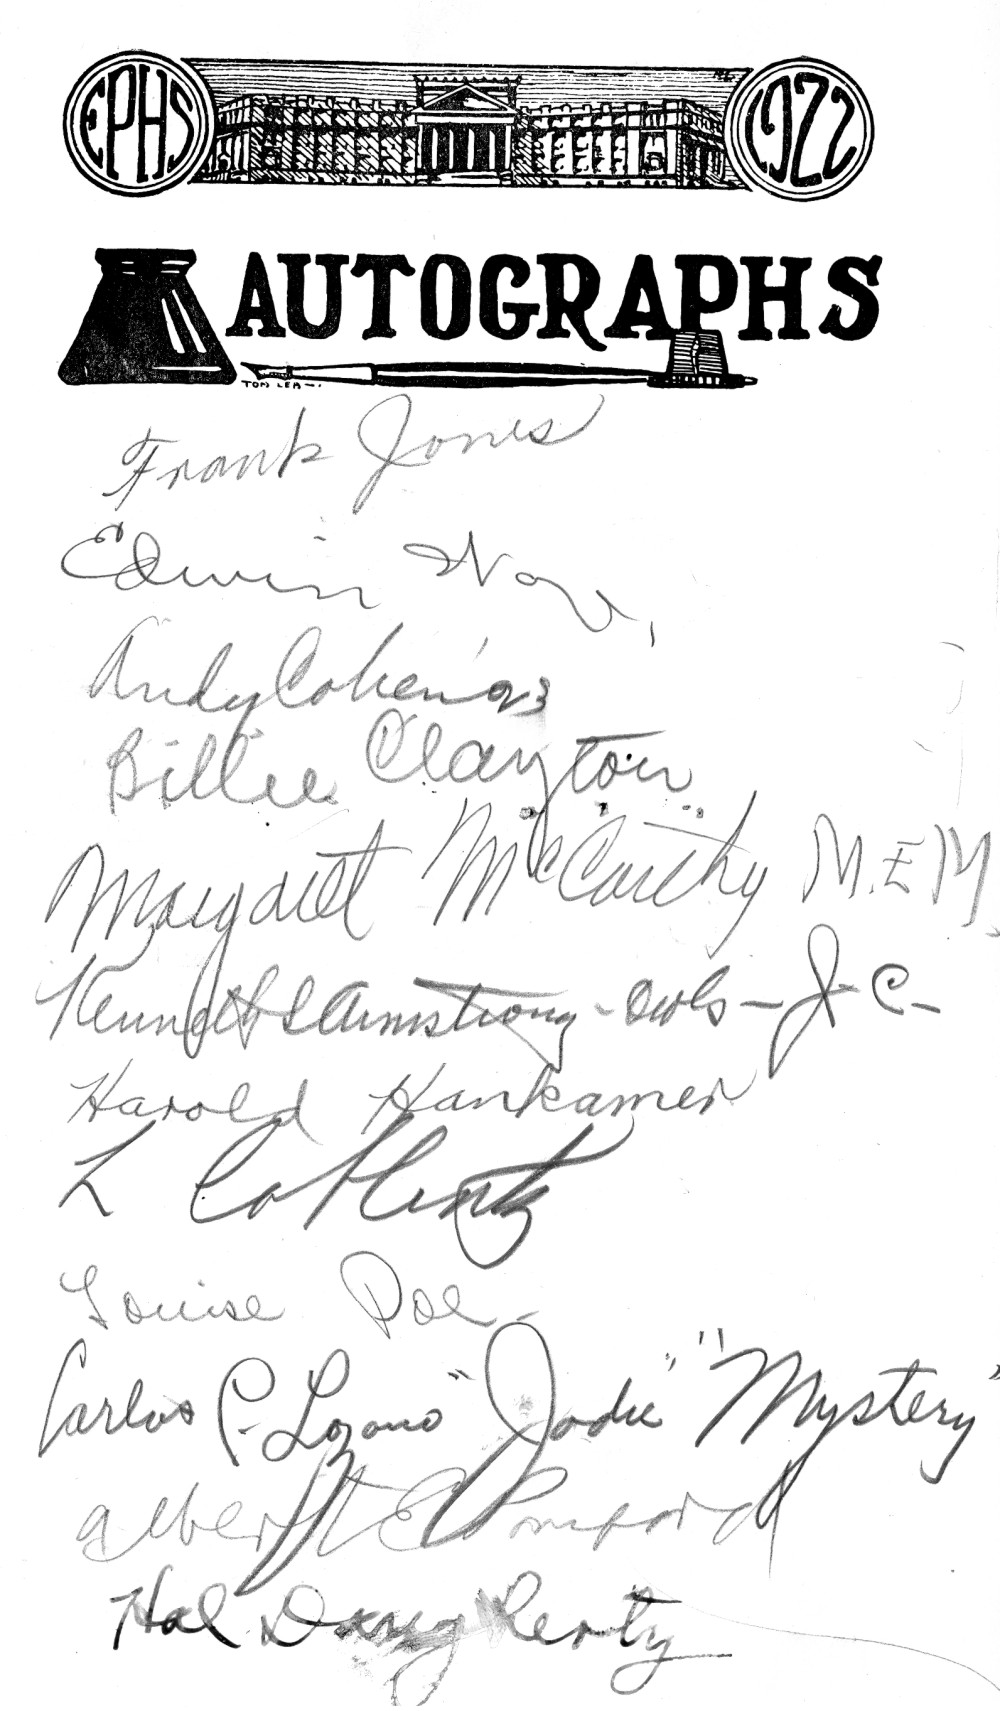 EPHS 1922
AUTOGRAPHS
TOM LEA
Frank Jones
Edwin
Andy Cohen '23
Billie Clayton
Margaret McCarthy M.E.M.
Kenneth S Armstrong - Owls - J - C -
Harold Hankamer
L Coblentz
Louise Poe -
Carlos P. Lozano "Jodie" "Mystery"
Albert E
Hal Daugherty